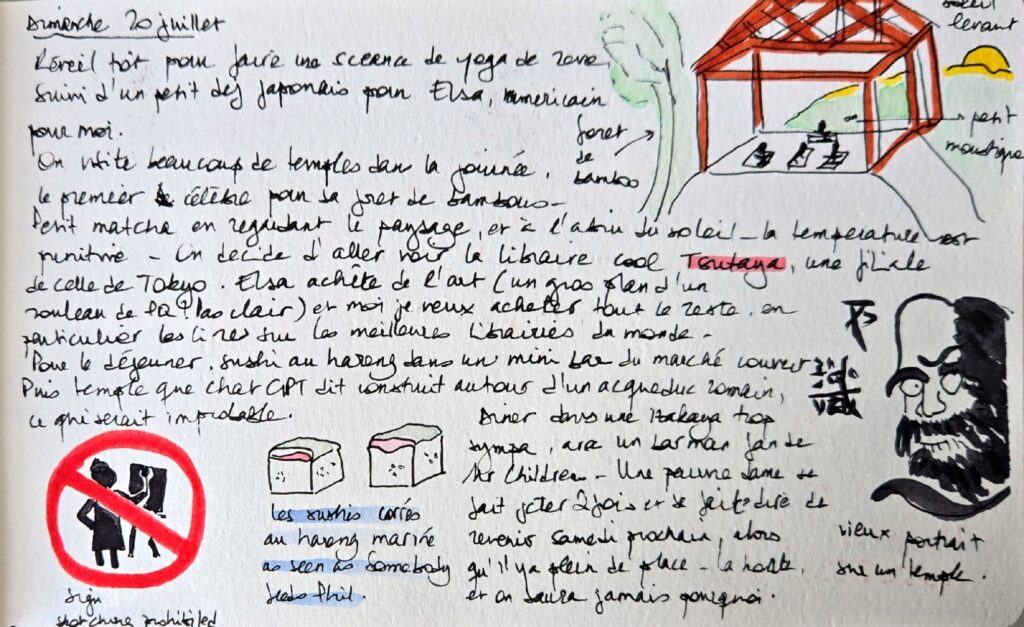 Dimanche 20 juillet
Réveil tôt pour faire une sceance de yoga de rêve,
suivi d'un petit dej japonais pour Elsa, americain
pour moi.
On visite beaucoup de temples dans la journée.
le premier célèbre pour sa foret de bambous -
Petit matcha en regardant le paysage, et à l'abri du soleil - la temperature est
punitive - On decide d'aller voir la libraire cool Tsutaya, une filiale
de celle de Tokyo. Elsa achète de l'art (un gros plan d'un
rouleau de PQ? Pas clair) et moi je veux acheter tout le reste, en
particulier les livres sur les meilleures librairies du monde -
Pour le déjeuner, sushi au hareng dans un mini bar du marché couvert
Puis temple que chat GPT dit construit autour d'un acqueduc romain,
ce qui serait improbable.
soleil
levant
petit
moustique
foret
de
bamboo
Diner dans une Izakaya trop
sympa, avec un barman fan de
Mr Children - Une pauvre dame se
fait jeter 2 fois et se fait dire de
revenir samedi prochain, alors
qu'il y a plein de place - la honte,
et on saura jamais pourquoi.
les sushis carrés
au hareng mariné
as seen as Somebody
feeds Phil.
sign
sketching prohibited
vieux portrait
sur un temple.